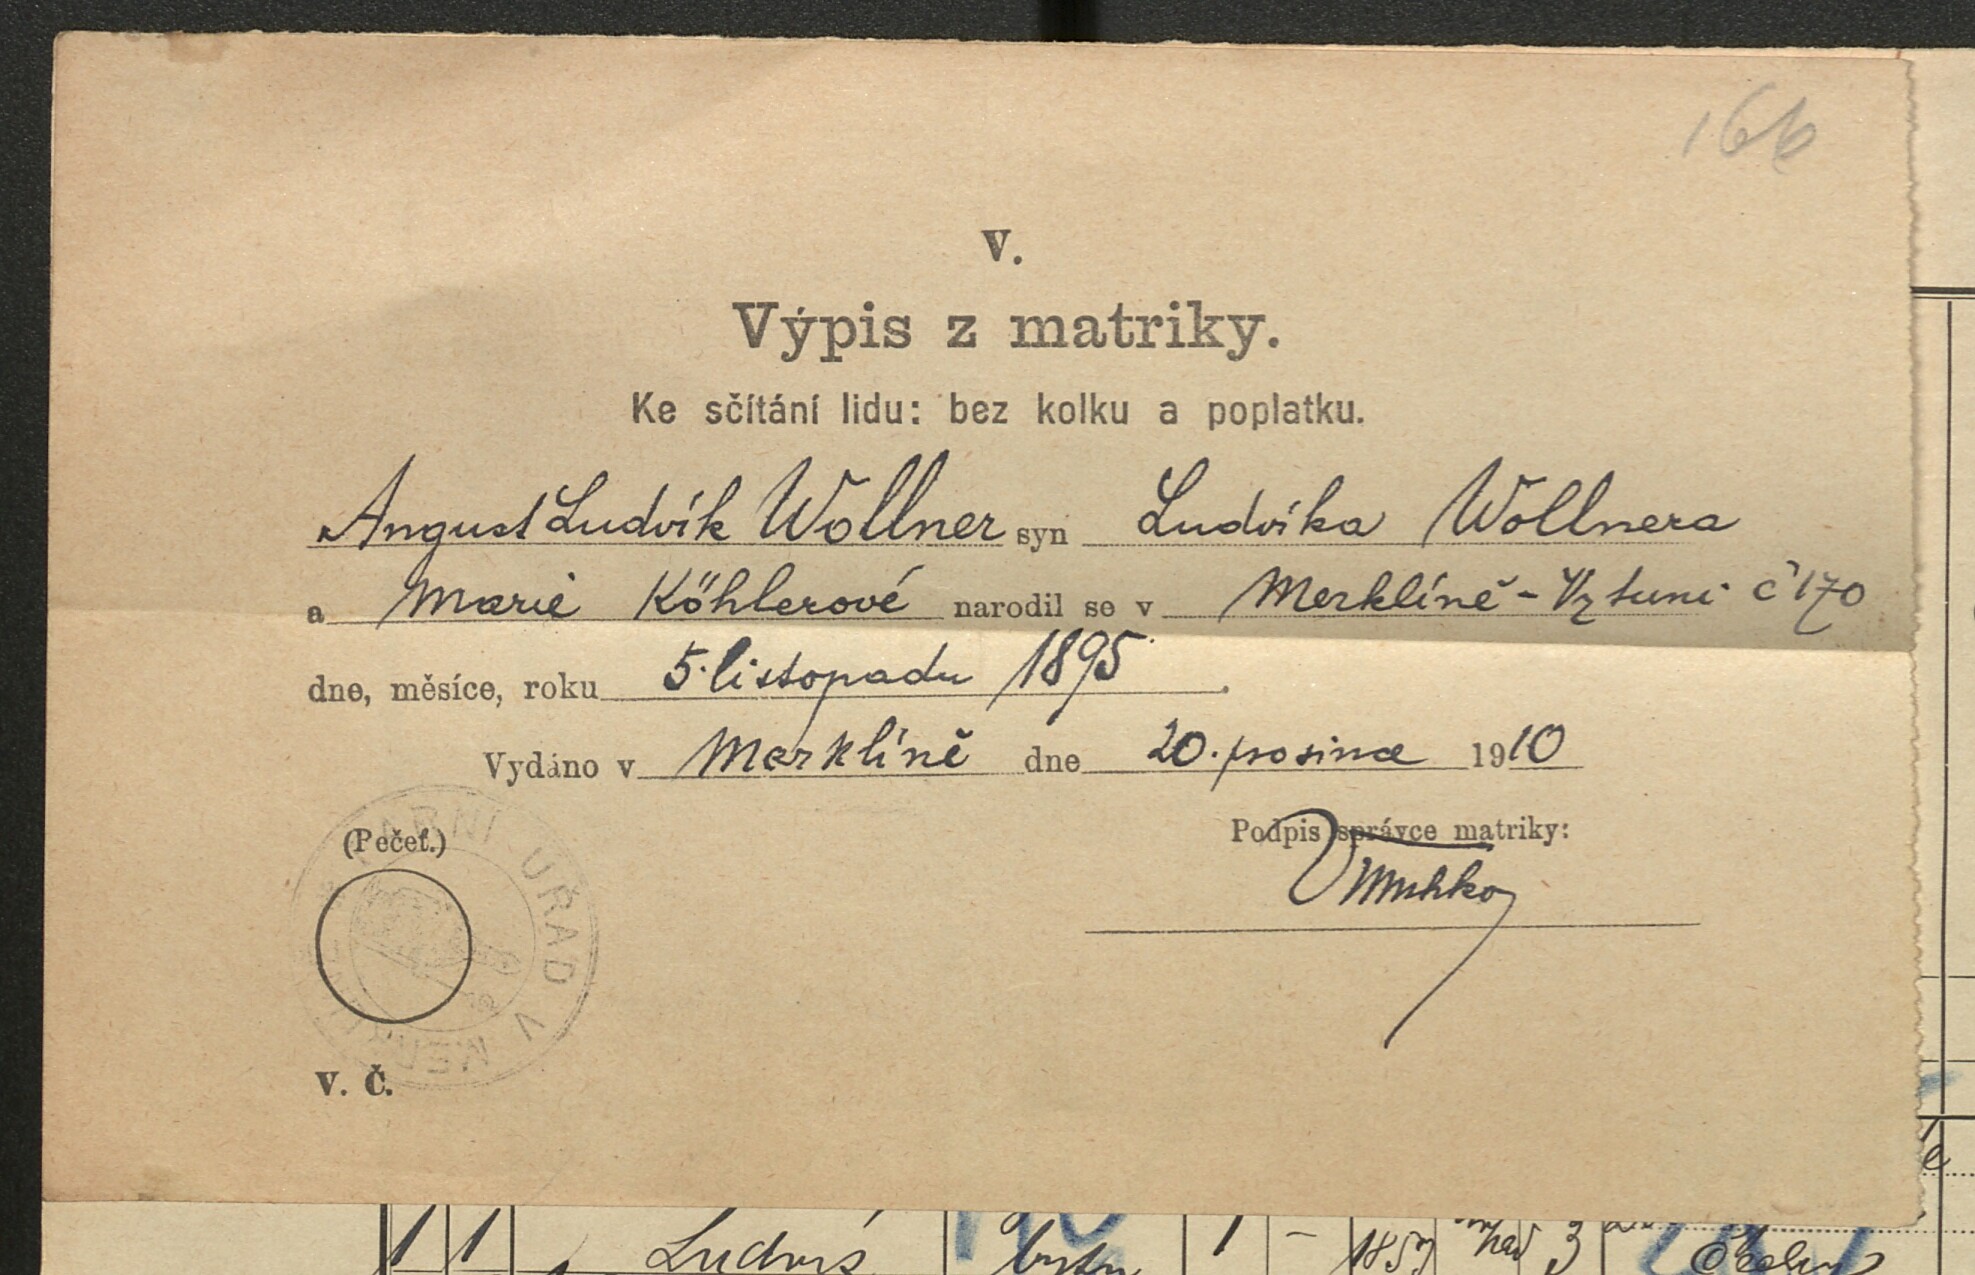 166
V.
Výpis z matriky.
Ke sčítání lidu: bez kolku a poplatku.
August Ludvík Wollner syn Ludvíka Wollnera
a Marie Köhlerové narodil se v Merklíně - Vztuni č 170
dne, měsíce, roku 5. listopadu 1895.
Vydáno v Merklíně dne 20. prosince 1910
(Pečeť.)
Podpis správce matriky:
ÚŘAD V
V. Č.
1 1 Ludvík 1 - 1859 3